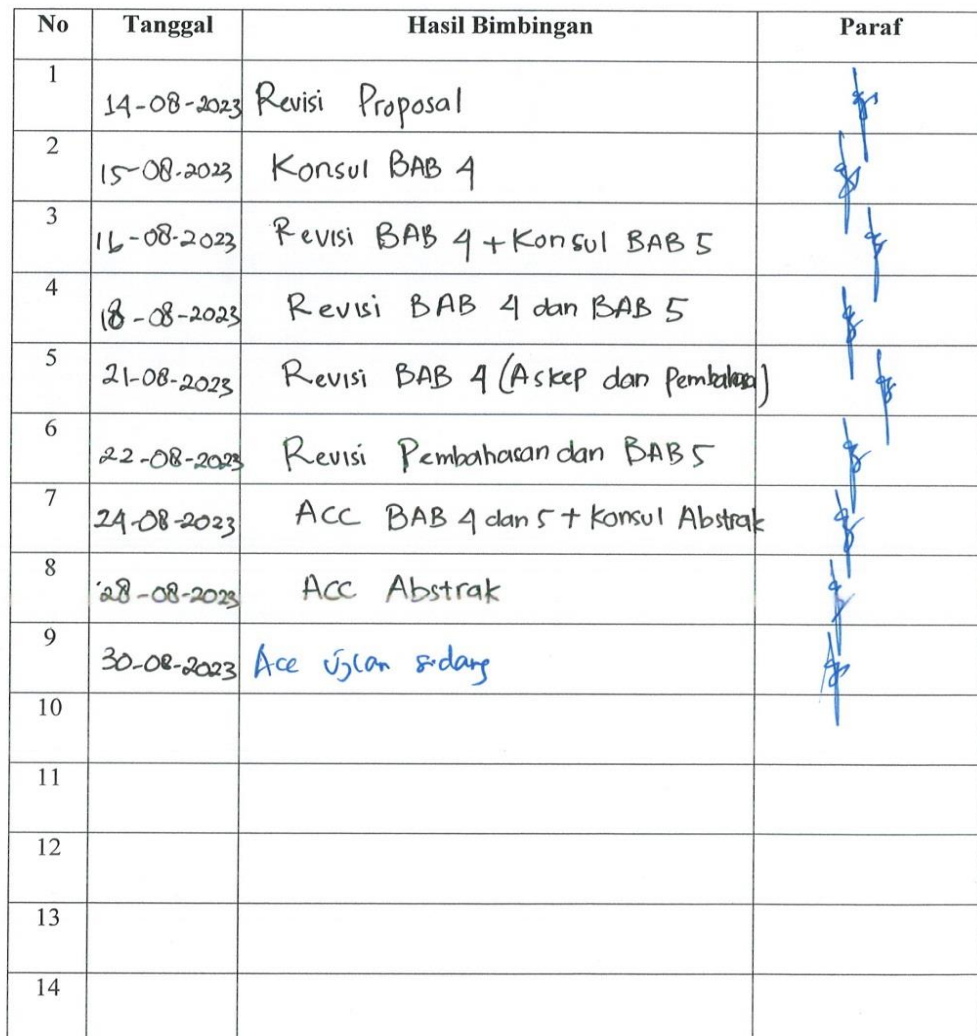 No Tanggal Hasil Bimbingan Paraf
1 14-08-2023 Revisi Proposal
2 15-08-2023 Konsul BAB 4
3 16-08-2023 Revisi BAB 4 + Konsul BAB 5
4 18-08-2023 Revisi BAB 4 dan BAB 5
5 21-08-2023 Revisi BAB 4 (Askep dan )
6 22-08-2023 Revisi Pembahasan dan BAB 5
7 24-08-2023 ACC BAB 4 dan 5 + Konsul Abstrak
8 28-08-2023 ACC Abstrak
9 30-08-2023 Acc sidang
10
11
12
13
14